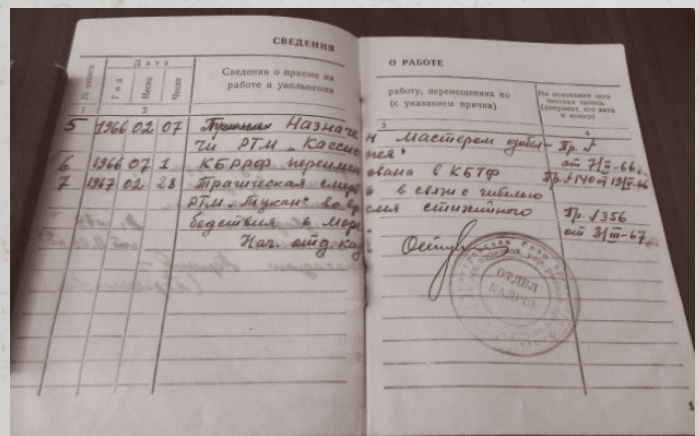 СВЕДЕНИЯ О РАБОТЕ
№ записи
Дата
Год
Месяц
Число
Сведения о приеме на работу, перемещениях по
работе и увольнении (с указанием причин)
На основании чего
внесена запись
(документ, его дата
и номер)
1 2 3 4
5 1966 02 07 Назначен Мастером добы-
чи РТМ „Кассиопея" Пр. № от 7/II-66г.
6 1966 07 1 КБРРФ переименована в КБТФ Пр. №140 от 19/V-66
7 1967 02 28 Трагическая смерть в связи с гибелью
РТМ „Тукан" во время стихийного Пр. №356
бедствия в море. от 31/III-67г.
Нач. отд. кад.
ОТДЕЛ
КАДРОВ